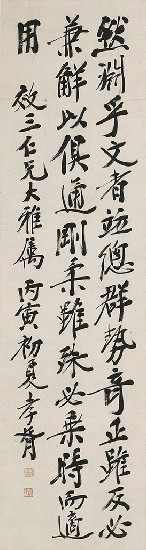 然淵乎文者並總群勢奇正雖反必
兼解以俱通剛柔雖殊必乘時而適
用
效三仁兄大雅属 丙寅初夏 孝胥